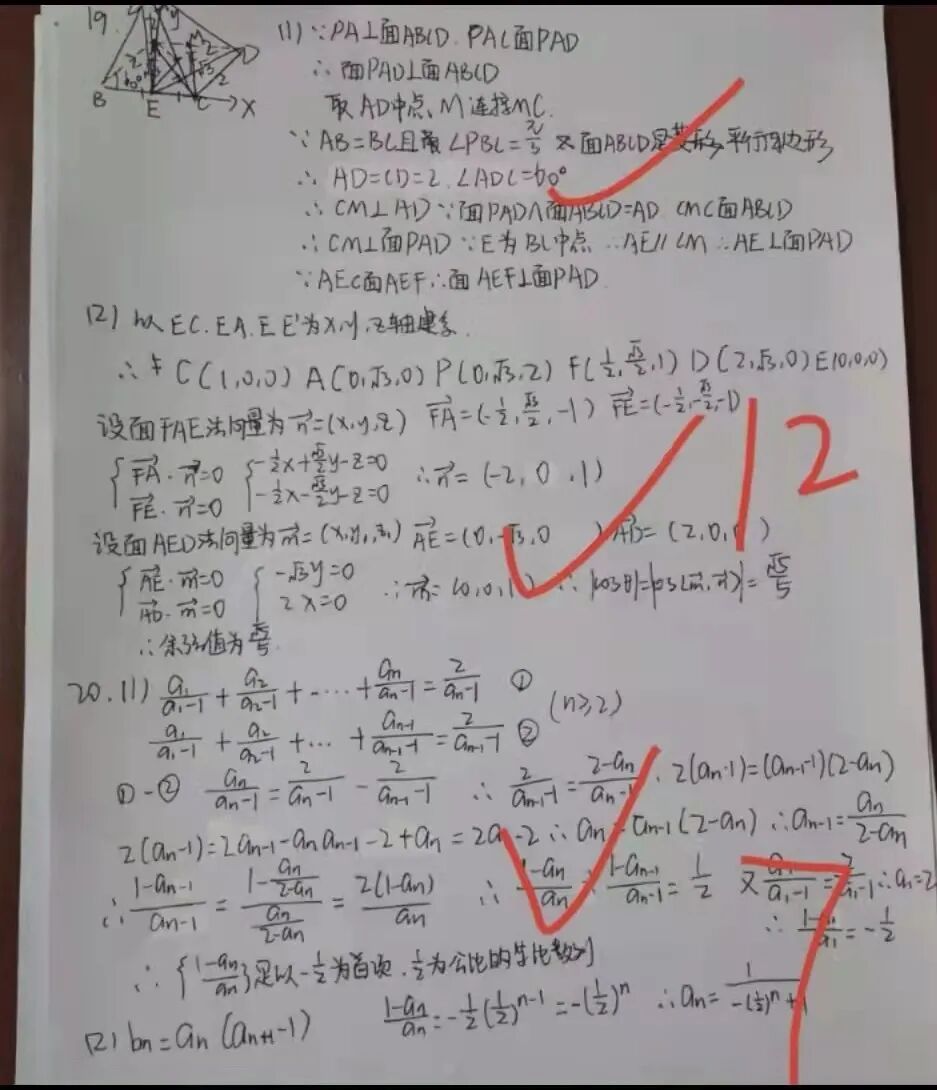 19.
B E C D X
(1) ∵PA⊥面ABCD. PA⊂面PAD
∴面PAD⊥面ABCD
取AD中点M连接MC.
∵AB=BC且 ∠PBC=π/3 又面ABCD是菱形,平行四边形
∴ AD=CD=2.∠ADC=60°
∴ CM⊥AD ∵面PAD∩面ABCD=AD CM⊂面ABCD
∴CM⊥面PAD ∵E为BC中点 ∴AE//CM ∴AE⊥面PAD
∵AE⊂面AEF∴面AEF⊥面PAD
(2) 以EC.EA.EE'为x,y,z轴建系.
∴ C(1,0,0) A(0,√3,0) P(0,√3,2) F(1/2,√3/2,1) D(2,√3,0) E(0,0,0)
设面FAE法向量为n=(x,y,z) FA=(-1/2,√3/2,-1) FE=(-1/2,-√3/2,-1)
{FA·n=0 {-1/2x+√3/2y-z=0 ∴n=(-2,0,1)
FE·n=0 -1/2x-√3/2y-z=0
12
设面AED法向量为m=(x,y,z) AE=(0,-√3,0) AD=(2,0,0)
{AE·m=0 {-√3y=0 ∴m=(0,0,1) ∴|cosθ|=|cos<m,n>|=√5/5
AD·m=0 2x=0
∴余弦值为√5/5
20.(1) a₁/(a₁-1)+a₂/(a₂-1)+…+aₙ/(aₙ-1)=2/(aₙ-1) ①
(n≥2)
a₁/(a₁-1)+a₂/(a₂-1)+…+aₙ₋₁/(aₙ₋₁-1)=2/(aₙ₋₁-1) ②
①-② aₙ/(aₙ-1)=2/(aₙ-1)-2/(aₙ₋₁-1) ∴2/(aₙ₋₁-1)=(2-aₙ)/(aₙ-1) 2(aₙ-1)=(aₙ₋₁-1)(2-aₙ)
2(aₙ-1)=2aₙ₋₁-aₙaₙ₋₁-2+aₙ=2aₙ-2∴aₙ=aₙ₋₁(2-aₙ) ∴aₙ₋₁=aₙ/(2-aₙ)
∴(1-aₙ₋₁)/aₙ₋₁=(1-aₙ/(2-aₙ))/(aₙ/(2-aₙ))=2(1-aₙ)/aₙ ∴(1-aₙ)/aₙ÷(1-aₙ₋₁)/aₙ₋₁=1/2 又a₁/(a₁-1)=2/(a₁-1)∴a₁=2
∴(1-a₁)/a₁=-1/2
7
∴{(1-aₙ)/aₙ}是以-1/2为首项.1/2为公比的等比数列
(1-aₙ)/aₙ=-1/2(1/2)ⁿ⁻¹=-(1/2)ⁿ ∴aₙ=1/(-(1/2)ⁿ+1)
(2) bₙ=aₙ(aₙ₊₁-1)